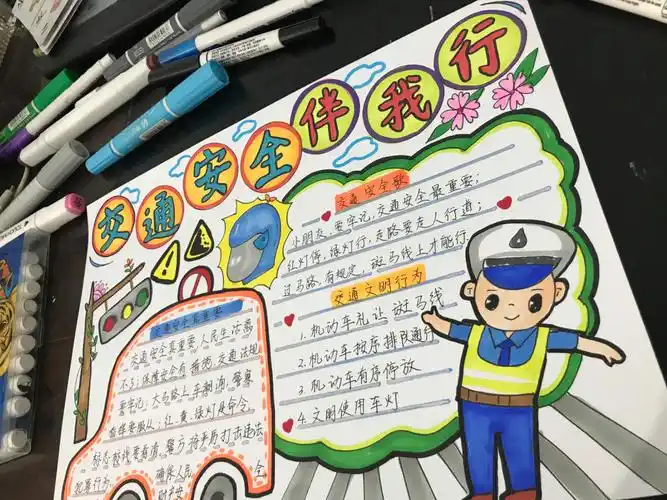 交通安全伴我行
交通安全歌
小朋友,要牢记,交通安全最重要;
红灯停,绿灯行,走路要走人行道;
过马路,有规定,斑马线上才能行。
交通文明行为
1.机动车礼让斑马线
2.机动车按序排队通行
3.机动车有序停放
4.文明使用车灯
交通安全真重要
交通安全真重要,人民生活离
不了;保障安全有措施,交通法规
要牢记;大马路上车潮涌,警察
指挥要服从;红、黄、绿灯是命令,
标志标线要看清,警弓将手局打击违法
犯罪行为 确保人民